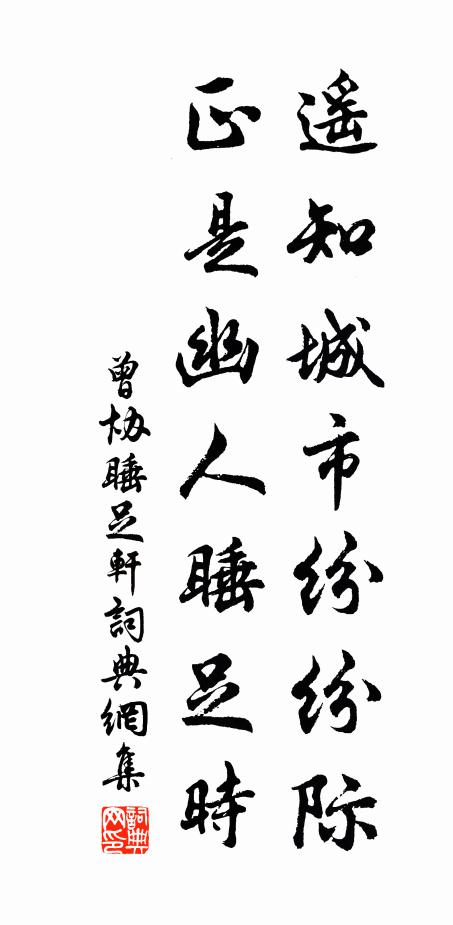 遥知城市纷纷际
正是幽人睡足時
曾协睡足軒詞典網集
詞典網印